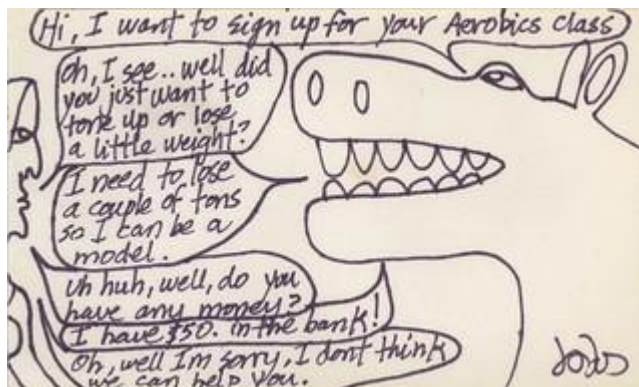 Hi, I want to sign up for your Aerobics class
Oh, I see.. well did
you just want to
tone up or lose
a little weight?
I need to lose
a couple of tons
so I can be a
model.
Uh huh, well, do you
have any money?
I have $50. in the bank!
Oh, well Im sorry, I dont think
we can help you.